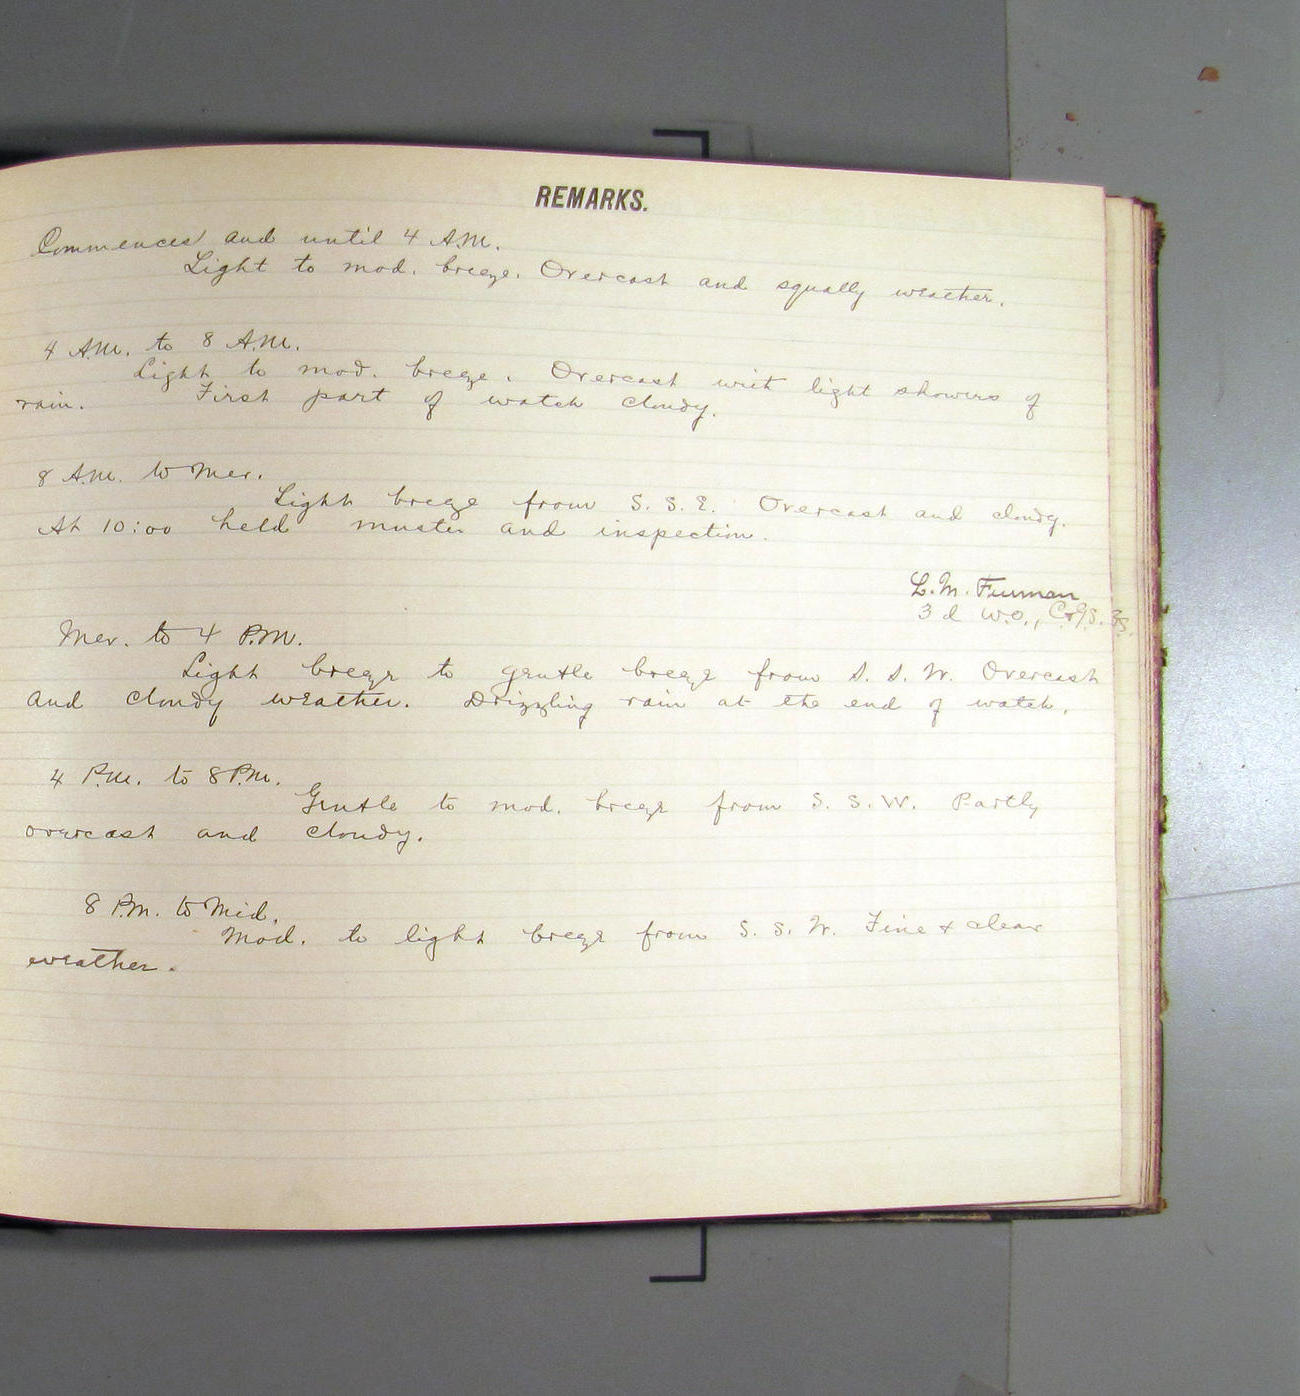 REMARKS.
Commences and until 4 A.M.
Light to mod. breeze. Overcast and squally weather.
4 A.M. to 8 A.M.
Light to mod. breeze. Overcast with light showers of
rain. First part of watch cloudy.
8 A.M. to Mer.
Light breeze from S. S. E. Overcast and cloudy.
At 10:00 held muster and inspection.
L. M. Furman
3d W.O., C.&G.S.
Mer. to 4 P.M.
Light breeze to gentle breeze from S. S. W. Overcast
and cloudy weather. Drizzling rain at the end of watch.
4 P.M. to 8 P.M.
Gentle to mod. breeze from S. S. W. Partly
overcast and cloudy.
8 P.M. to Mid.
Mod. to light breeze from S. S. W. Fine & clear
weather.